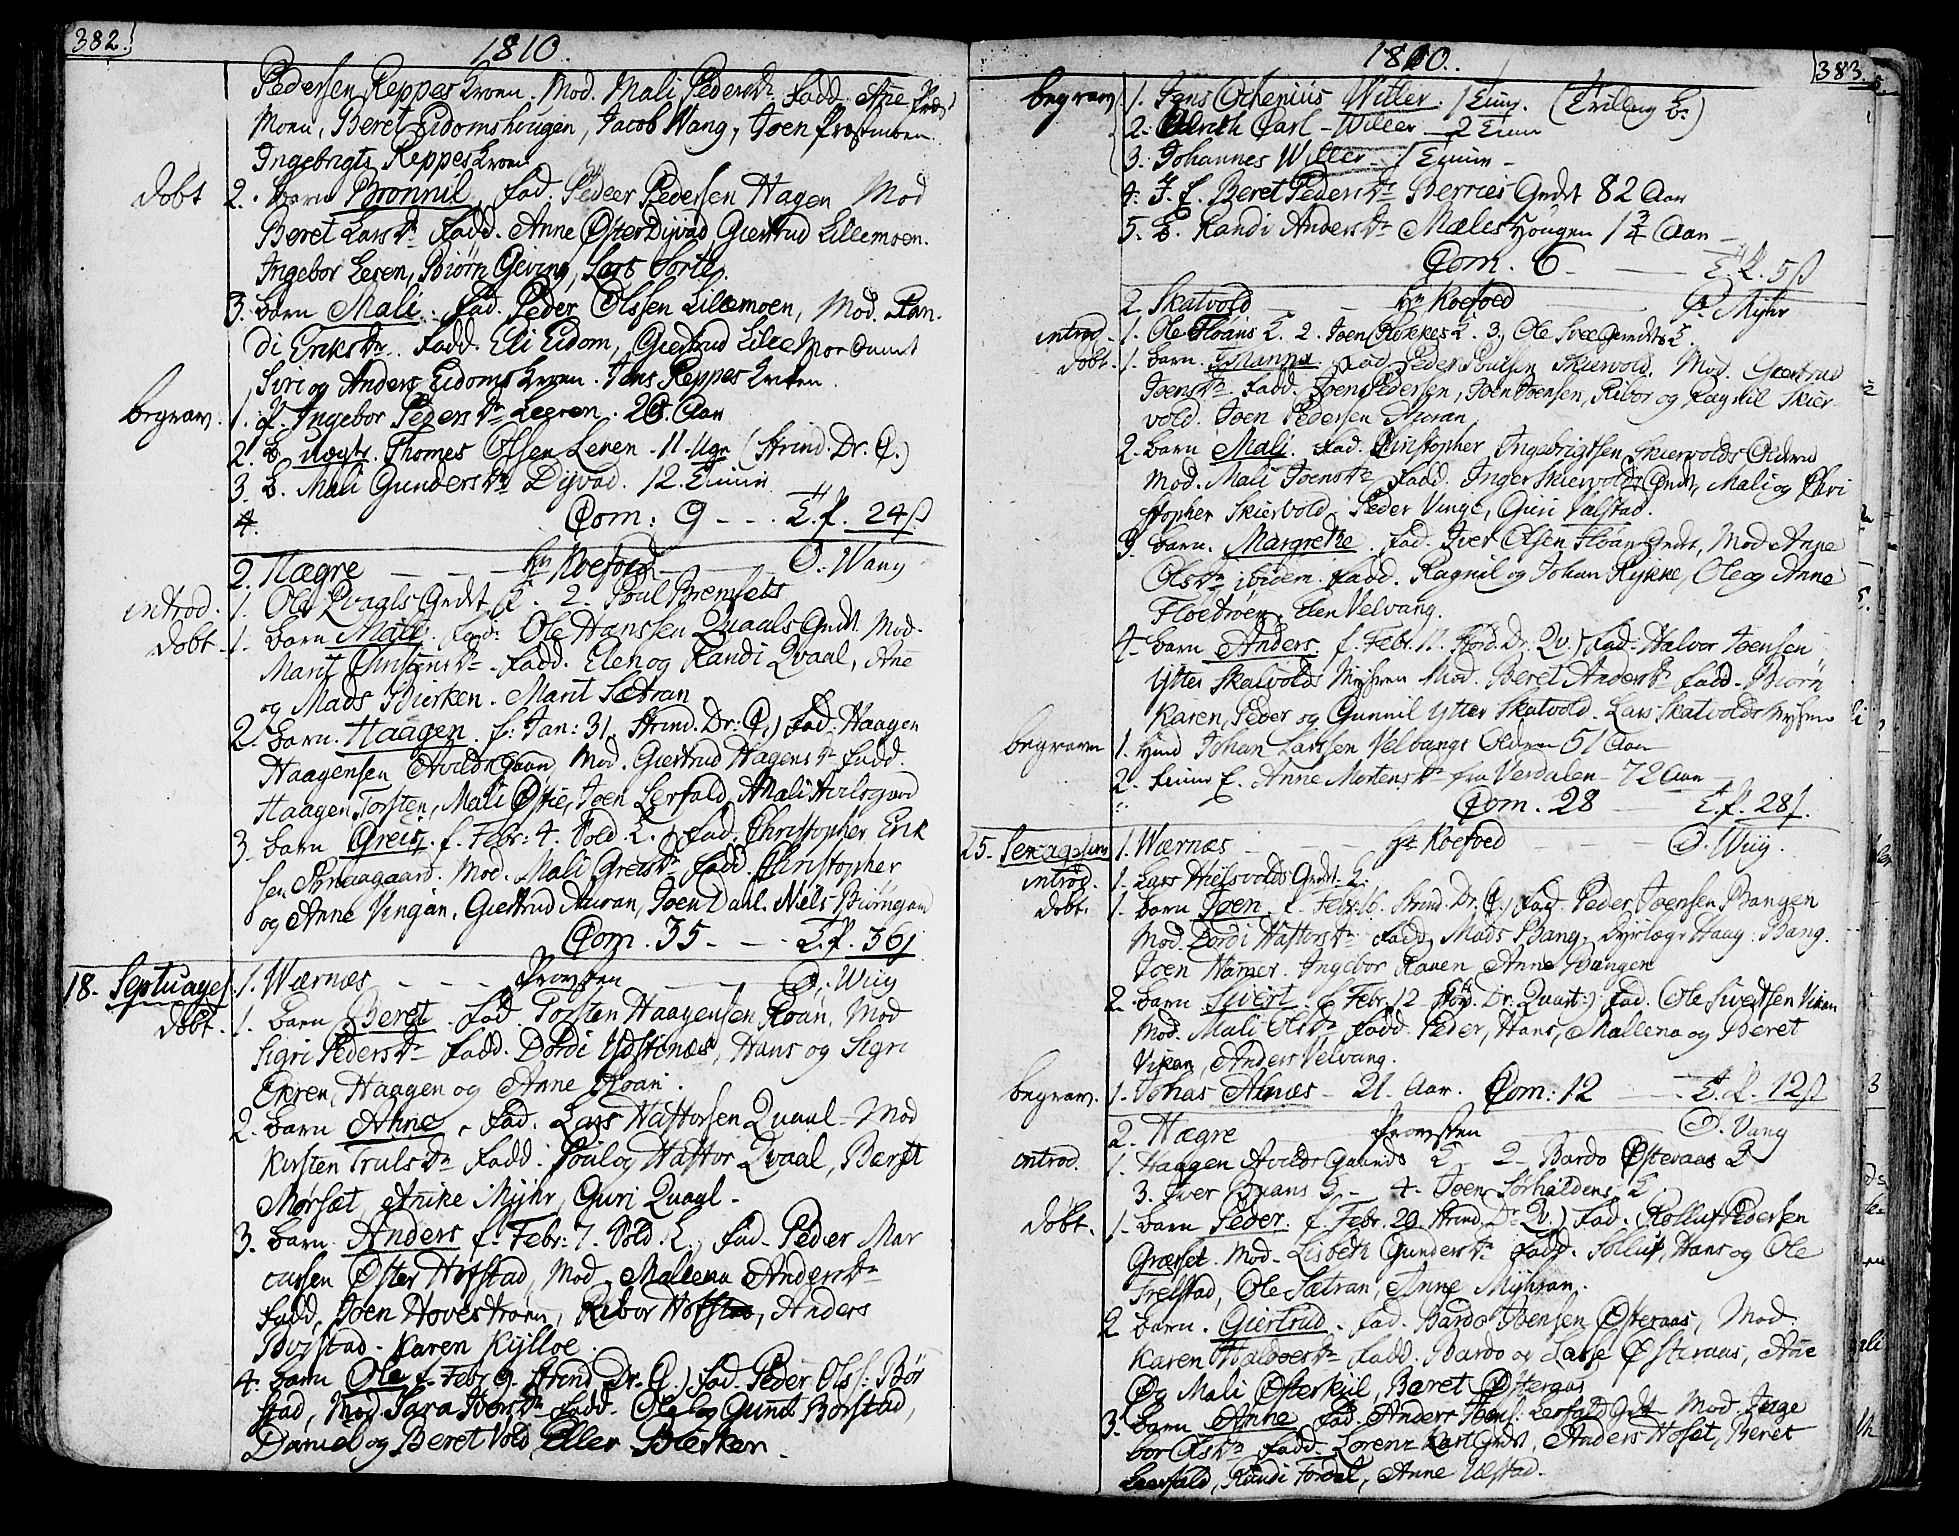 382.
1810.
Pedersen Reppes Kroen. Mod. Mali Pedersdr Fadd. Ane Præst
Moen, Beret Eidomshougen, Jacob Wang, Joen Præstmoen.
Ingebrigts Reppes Kroen
døbt 2. barn Bronnil, Fad. Pedeer Pedersen Hagen Mod
Beret Larsdr Fadd. Anne Øster Dyvad, Giertrud Lillemoen.
Ingebor Leren, Biørn Geving, Lars Forte.
3. barn Mali. Fad. Peder Olssen Lillemoen, Mod. Ran-
di Eriksdr. Fadd. Eli Eidom, Giertrud Lille Moe
Siri og Anders Eidoms Kroen. Jens Reppes Kroen.
begrav. 1. Ingebor Pedersdr Leeren. 20. Aar
2. B. uægte. Thomes Olssen Leren. 11 Uger (Strind. Dr. C.)
3. B. Mali Gundersdr Dyvad. 12. Eimin
4. Com: 9 - - . T. P. 24 ß
2. Hægre - - - Hr Koefoed - - O. Wang
introd. 1. Ole Qvals Grdt K. 2. Poul Bremsets
døbt 1. barn Mali. Fad: Ole Hanssen Quaals Grdt. Mod.
Marit Christensdr. Fadd. Elen og Randi Qvaal, Ane
og Mads Bierken. Marit Sætran
2. barn. Haagen. f. Jan: 31. Strind. Dr: C.) Fad: Haagen
Haagensen Avilds Gaan Mod. Giertrud Hagensdr Fadd.
Haagen Torsten, Mali Øfie, Joen Lerfald, Mali Avilsgaard
3. barn Greis. f. Febr: 4. Vold. K.) Fad. Christopher Erik
sen Aanaagaard. Mod. Mali Greisdr Fadd. Christopher
og Anne Vingan. Giertrud Auran, Joen Dahl. Niels Biørngaard
Com. 35. - - . T. P. 36 ß
18. Septuages. 1. Wærnes - - - Provsten - - O. Wiig
døbt. 1. barn Beret. Fad Torsten Haagensen Roan, Mod
Sigri Pedersdr Fadd. Dordi Ydstines, Hans og Sigri
Ekren, Haagen og Anne Roan.
2. barn Anne, Fad. Lars Haftorsen Quaal Mod
Kirsten Trulsdr Fadd. Poul og Haftor Qvaal, Beret
Mørset, Anike Myhr, Guri Quaal.
3. barn. Anders f. Febr: 7. Vold. K., Fad. Peder Mar
cussen Øster Hofstad, Mod. Mallena Andersdr
Fadd. Joen Hoves Kroen, Ribor Hofstad, Anders
Borstad. Karen Kylloe.
4. barn Ole f. Febr 9. Strind Dr. C.) Fad. Peder Olss: Bor
stad, Mod. Sara Iversdr Fadd. Ole og Gunil Borstad,
Daniel og Beret Vold, Eller Blerken.
1810.
383.
begrav. 1. Jens Ochenius Willer. 1 Eim. (Trilling B.)
2. Ulrich Carl Willer 2 Eim
3. Johannes Willer 1 Eimin
4. J. f. Beret Pedersdr Berries Grdt 82 Aar
5. B. Randi Andersdr Mæles Hougen 1 3/4 Aar
Com. 6 - - T. P. 5 ß
2 Skatvold - Hr Koefoed P. Myhr
introd. 1. Ole Floans K. 2. Joen Klokkes K. 3. Ole Svee Grdts K.
døbt. 1. barn. Fad. Peder Poulsen Skiervold. Mod. Giertrud
Joensdr Fadd. Joen Pedersen, Joen Joensen, Ribor og Ragnil Skier-
vold. Joen Pedersen Auran.
2. barn Mali. Fad. Christopher Ingebrigtsen Skiervolds Olderen
Mod. Mali Joensdr Fadd. Inger Skiervolds Grdt, Mali og Chri
stopher Skiervold, Peder Vinge, Guri Valstad.
3. barn. Margrethe. Fad. Iver Olsen Floan Grdt, Mod Anne
Olsdr ibidem. Fadd. Ragnil og Johan Rykke, Ole og Anne
Floedrøen, Elen Velvang.
4. barn Anders. f. Febr. 11. Hjord. Dr. Qv.) Fad. Halvor Joensen
Ytter Skatvolds Myhren Mod. Beret Andersdr Fadd. Biørn
Karen, Peder og Gunnil Ytter Skatvold. Lars Skatvolds Myhren
begraven 1. Johan Larssen Velvangs Olderen 51 Aar
2. Anne Mortensdr fra Verdalen 72 Aar
Com. 28 T. P. 28 ß.
25. Sexagesima 1. Wærnes - - Hr Koefoed - - O. Wiig.
introd. 1. Lars Hielsvolds Grdt. K.
døbt. 1. barn Joen f. Febr. 16. Strind. Dr. C.) Fad. Peder Joensen Bangen
Mod. Dordi Haftorsdr Fadd. Mads Bang, Dyrlæge Haag: Bang.
Joen Hamer. Ingebor Raven Anne Bangen
2. barn Sivert f. Febr. 12 Dr. Quart:) Fad. Ole Sivertsen Vikan
Mod. Mali Olsdr Fadd. Peder, Hans, Mallena og Beret
Vikan, Anders Velvang.
begrav. 1. Johas Alnæs 21. Aar. Com: 12 - - T. P. 12 ß
2. Hægre Provsten O. Vang
introd. 1. Haagen Avilds Gaards K. 2. Bardo Østeraas K
3. Iver Buans K. 4. Joen Sørhaldens K
døbt. 1. barn Peder. f. Febr. 20. Strind. Dr. Qv.) Fad. Rolluf Pedersen
Græset. Mod. Lisbeth Gundersdr Fadd. Tolluf, Hans og Ole
Frelstad, Ole Sætran, Anne Myhran.
2 barn. Giertrud. Fad. Bardo Joensen Østeraas, Mod
Karen Haldoersdr Fadd. Bardo og Lasse Østeraas, Ane
Og Mali Østerkiil, Beret Østeraas
3. barn Anne Fad. Anders Joens: Lerfald Grdt Mod Inge
bor Olsdr Fadd. Lorenz Kart Grdt, Anders Hofet, Beret
Leerfald, Randi Fordal, Anne Ulstad.